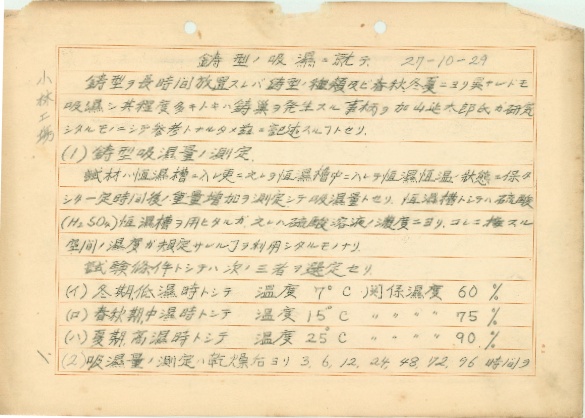 鋳型ノ吸濕ニ就テ 27-10-29
鋳型ヲ長時間放置スレバ鋳型ノ種類及ビ春秋冬夏ニヨリ異ナレドモ
吸濕シ其程度多キトキハ鋳巣ヲ発生スル事柄ヲ加山延太郎氏ガ研究
シタルモノニシテ参考トナルタメ茲ニ記述スルコトセリ
(1) 鋳型吸濕量ノ測定.
試材ハ恒濕槽ニ入レ更ニ之レヲ恒温槽中ニ入レテ恒濕恒温ノ状態ニ保タ
シメ一定時間後ノ重量増加ヲ測定シテ吸濕量トセリ. 恒濕槽トシテハ硫酸
(H₂SO₄)恒濕槽ヲ用ヒタルガ之レハ硫酸溶液ノ濃度ニヨリ.コレニ接スル
空間ノ濕度ガ規定サレルヿヲ利用シタルモノナリ.
試験條件トシテハ次ノ三者ヲ選定セリ
(イ) 冬期低濕時トシテ 温度 7°C 関係濕度 60 %
(ロ) 春秋期中濕時トシテ 温度 15°C 〃 〃 〃 〃 75 %
(ハ) 夏期高濕時トシテ 温度 25°C 〃 〃 〃 〃 90 %
(2) 吸濕量ノ測定ハ乾燥后ヨリ 3, 6, 12, 24, 48, 72, 96 時间ヲ
小林工場